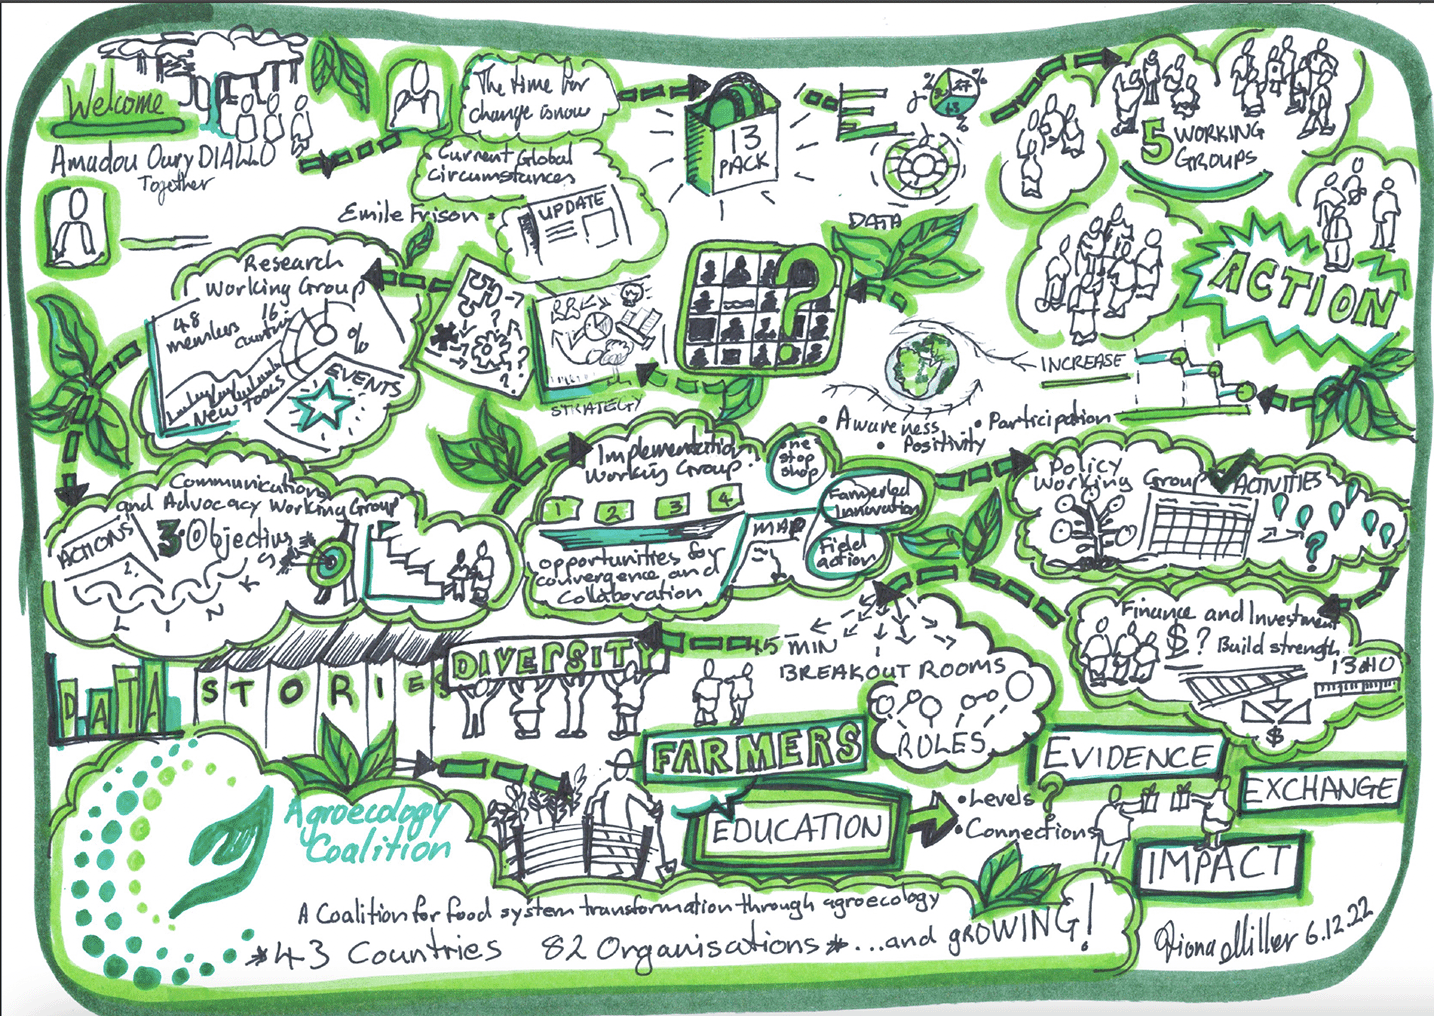 Welcome
Amadou Oury DIALLO
Together
The time for
change is now
Current Global
circumstances
Emile Frison
UPDATE
13
PACK
DATA
5 WORKING
GROUPS
ACTION
INCREASE
• Awareness
• Positivity
• Participation
STRATEGY
Research
Working Group
48
members
16
countries
%
NEW TOOLS
EVENTS
Communications
and Advocacy Working Group
ACTIONS
3 Objectives
LINKS
Implementation
Working Group
1 2 3 4
opportunities for
convergence and
collaboration
One
stop
shop
MAP
Farmer led
Innovation
Field
action
Policy
Working Group
ACTIVITIES
?
Finance and Investment
$? Build strength
13
$
45 MIN
BREAKOUT ROOMS
RULES
DATA
STORIES
DIVERSITY
FARMERS
EDUCATION
• Levels ?
• Connections
EVIDENCE
EXCHANGE
IMPACT
Agroecology
Coalition
A Coalition for food system transformation through agroecology
*43 Countries 82 Organisations* ...and gROWING!
Fiona Miller 6.12.22